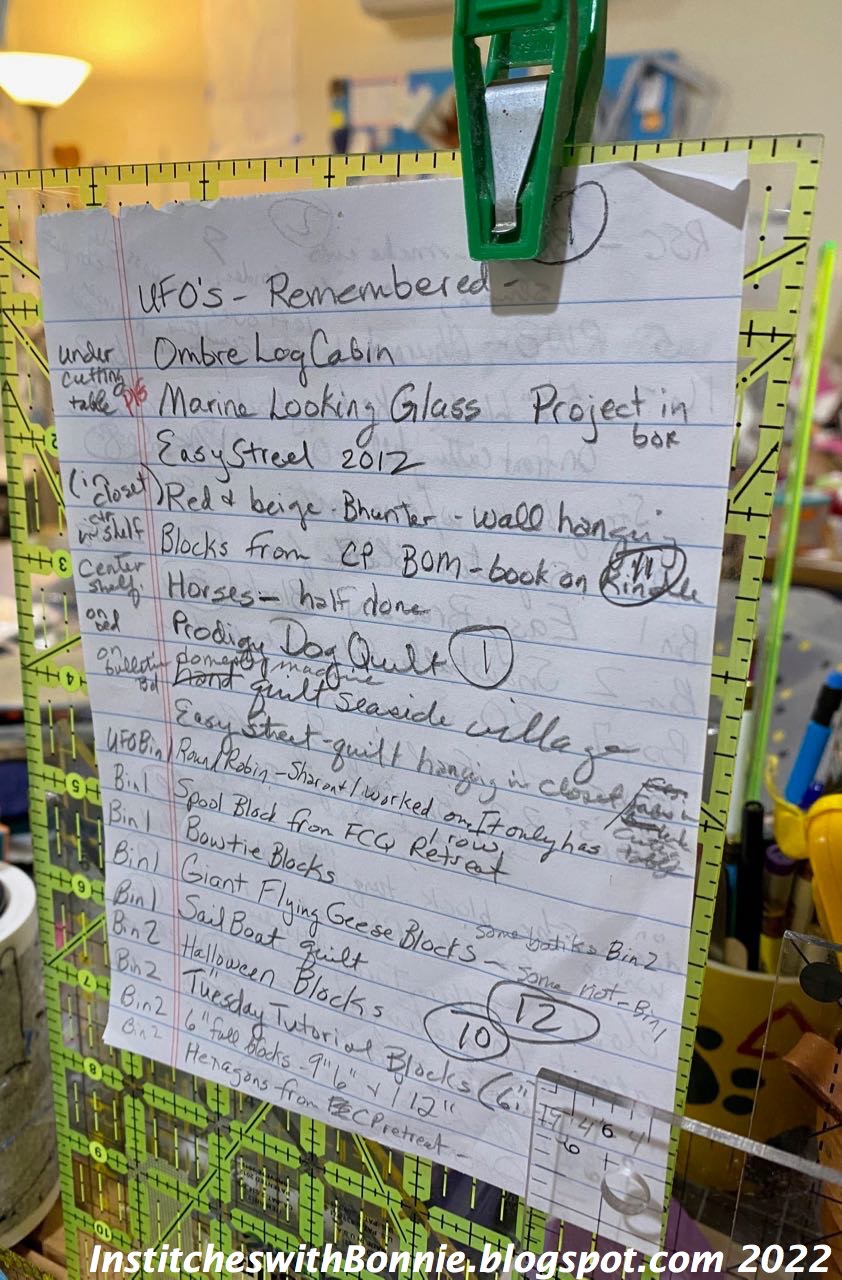 1
UFO's - Remembered -
under cutting table Ombre Log Cabin
PVG Marine Looking Glass Project in box
Easy Street 2012
(in closet) Red & beige - Bhunter - wall hanging
on shelf Blocks from CP BOM - book on Kindle 11
Center shelf Horses - half done
on bed Prodigy Dog Quilt 1
on bulletin Bd domestic machine
quilt seaside village
Easy Street - quilt hanging in closet
UFO Bin 1 Round Robin - Sharon + I worked on. It only has 1 row
Bin 1 Spool Block from FCQ Retreat
Bin 1 Bowtie Blocks
Bin 1 Giant Flying Geese Blocks - some batiks Bin 2
some not - Bin 1
Bin 1 Sail Boat quilt
Bin 2 Halloween Blocks 12
Bin 2 Tuesday Tutorial Blocks (6" 10
Bin 2 6" fall blocks - 9" 6" + 12"
Bin 2 Hexagons from CP retreat -
2
3
4
5
6
7
8
9
10
InstitcheswithBonnie.blogspot.com 2022